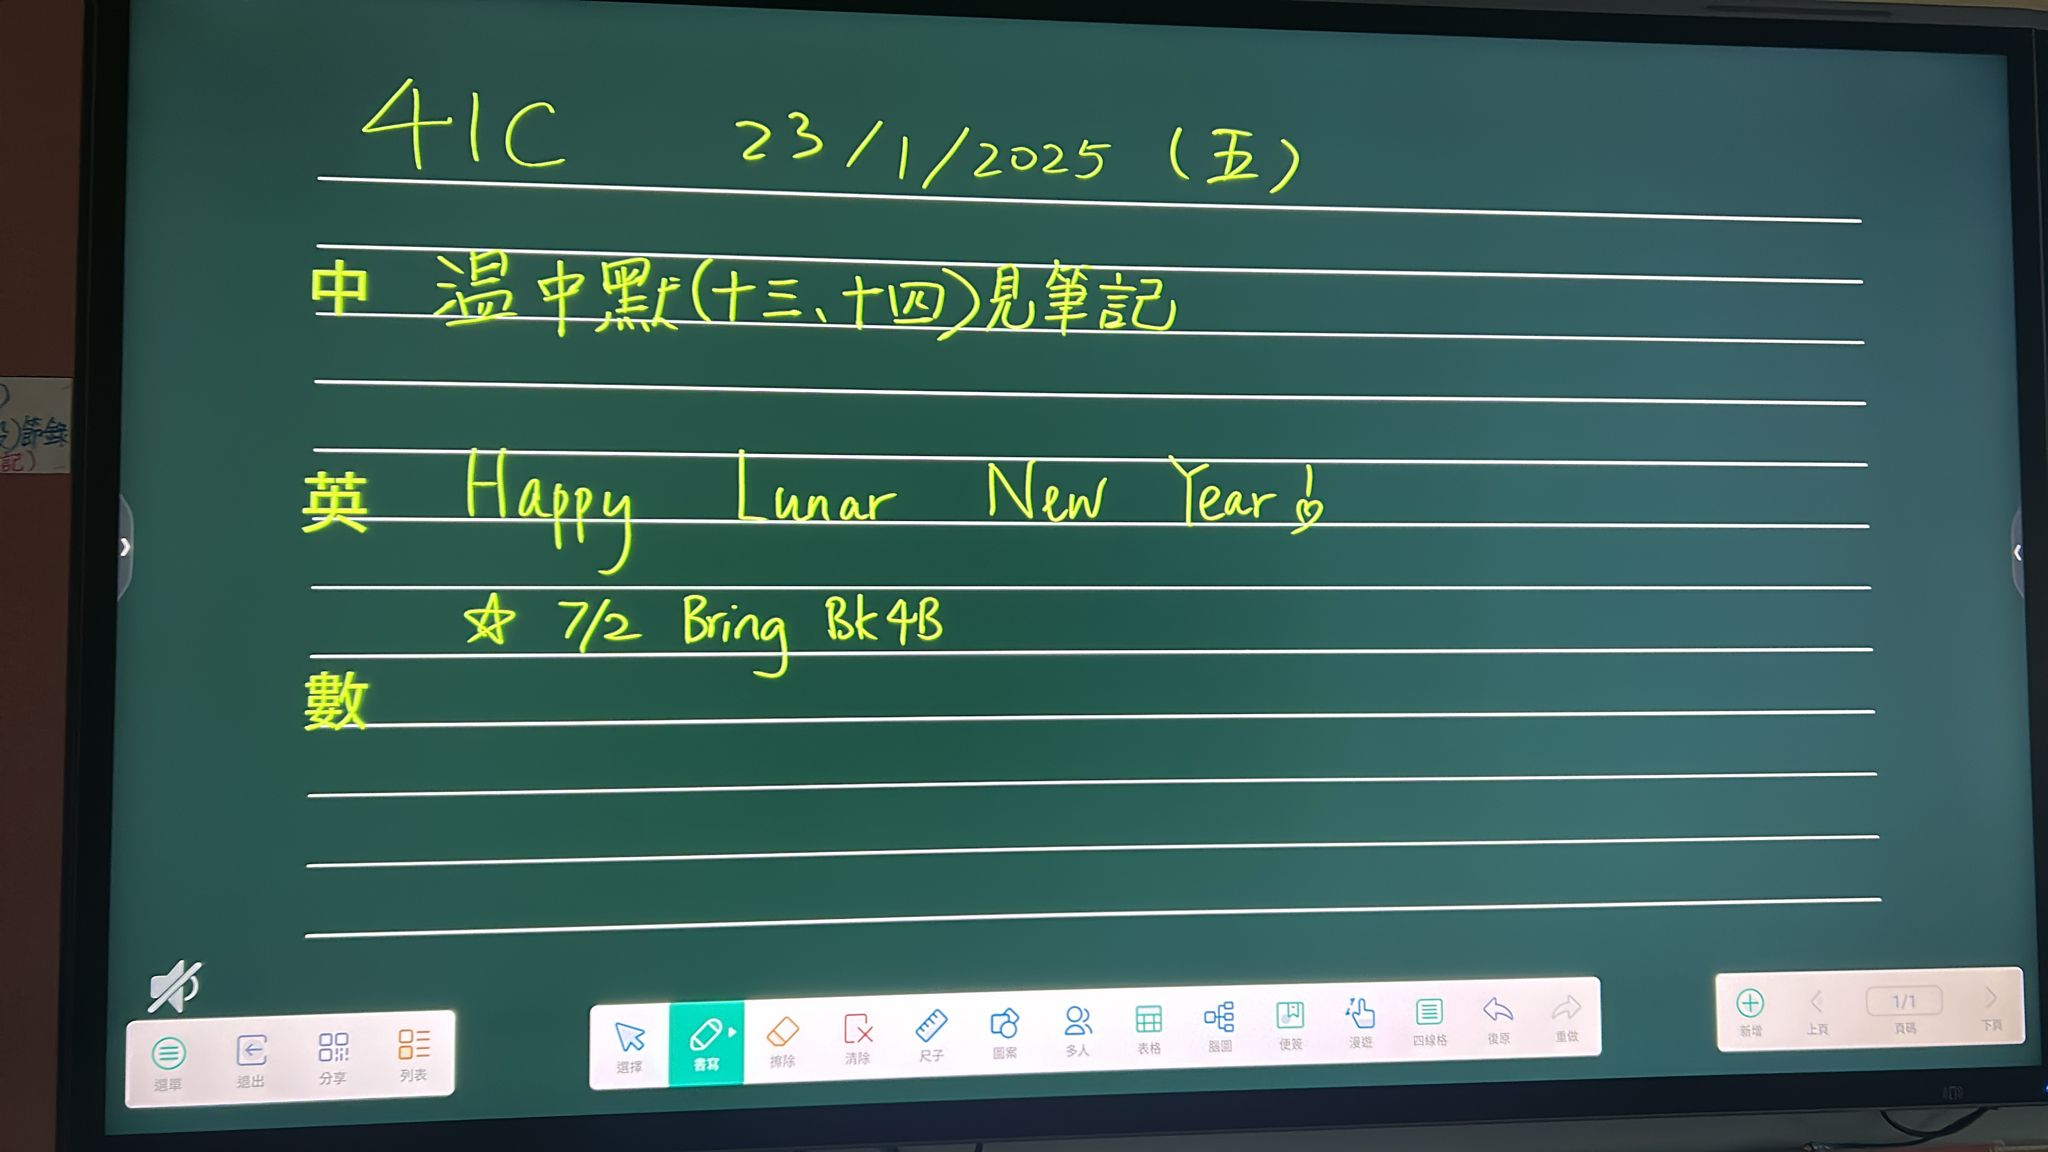 41C 23/1/2025 (五)
中 温中默(十三、十四)見筆記
英 Happy Lunar New Year!
☆ 7/2 Bring Bk4B
數
節錄
記)
選單 退出 分享 列表
選擇 書寫 擦除 清除 尺子 圖案 多人 表格 腦圖 便簽 漫遊 四線格 復原 重做
新增 上頁 1/1 頁碼 下頁